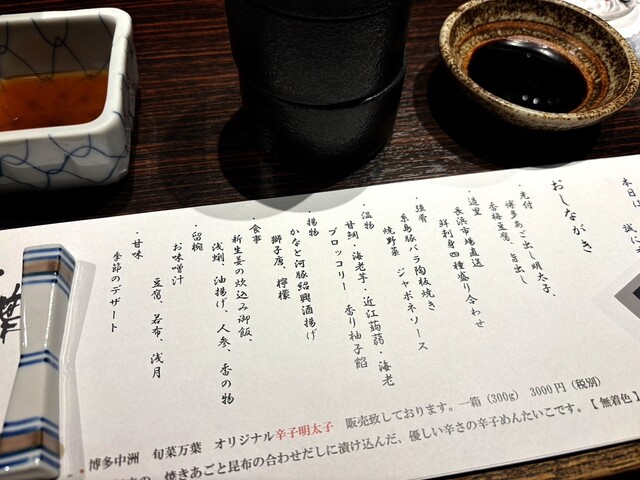 本日は
誠に
おしながき
・先付
博多あご出し明太子、
香梅豆腐、旨出し
・造里
長浜市場直送
鮮利身四種盛り合わせ
・強肴
糸島豚バラ陶板焼き
焼野菜 ジャポネソース
温物
甘鯛・海老芋・近江蒟蒻・海老
ブロッコリー 香り柚子餡
揚物
かなと河豚紹興酒揚げ
獅子唐、檸檬
・食事
新生姜の炊込み御飯、
浅蜊、油揚げ、人参、香の物
・留椀
お味噌汁
豆腐、若布、浅月
・甘味
季節のデザート
博多中洲 旬菜万葉 オリジナル辛子明太子 販売致しております。一箱（300g） 3000円（税別）
焼きあごと昆布の合わせだしに漬け込んだ、優しい辛さの辛子めんたいこです。【無着色】